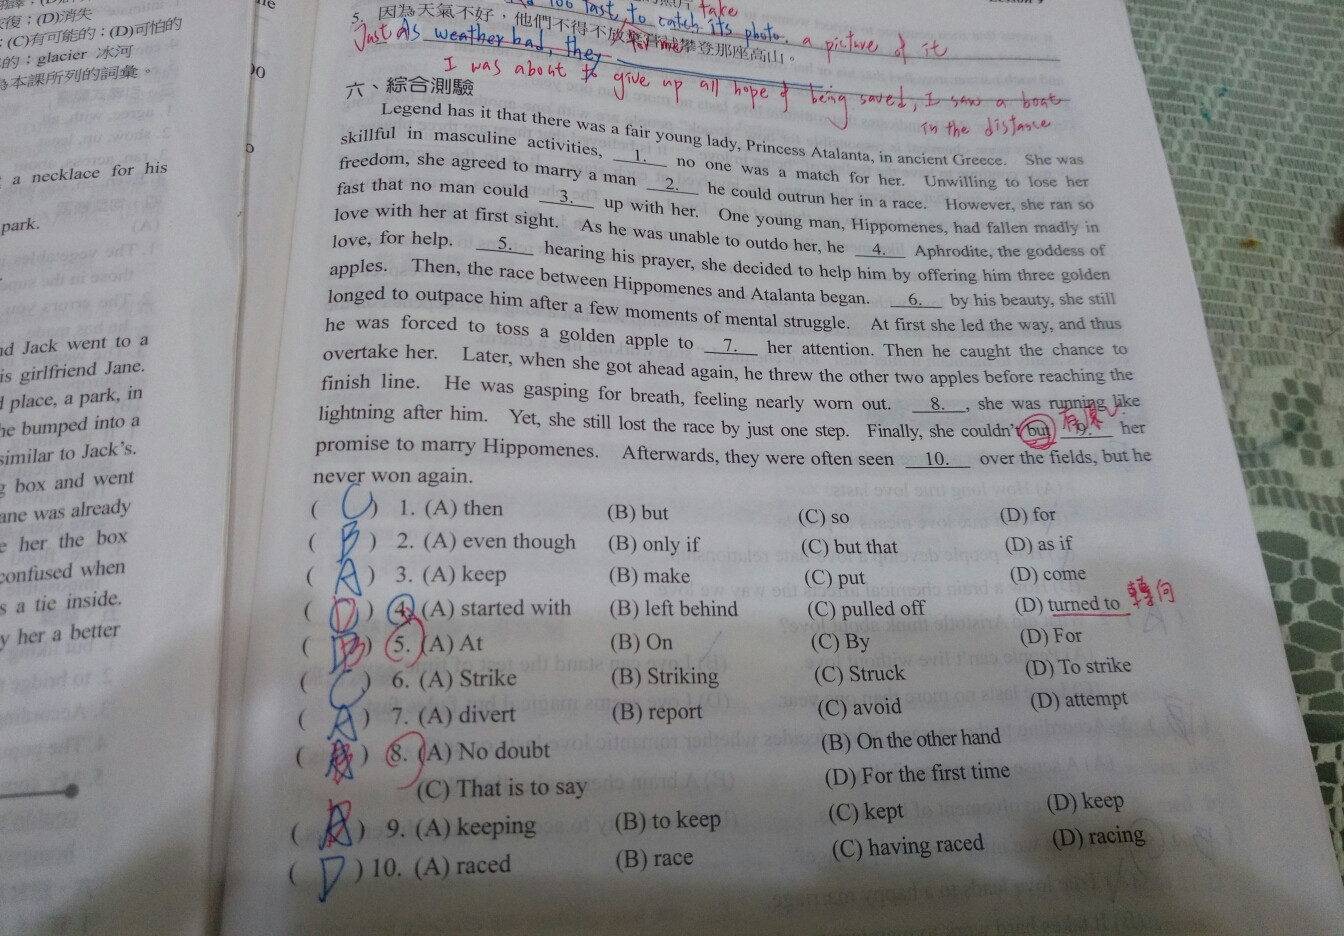 復;(D)消失
;(C)有可能的;(D)可怕的
的;glacier 冰河
為本課所列的詞彙。
a necklace for his
park.
nd Jack went to a
is girlfriend Jane.
l place, a park, in
he bumped into a
similar to Jack's.
g box and went
ane was already
e her the box
confused when
s a tie inside.
y her a better
too fast to catch its photo. take a picture of it
5. 因為天氣不好,他們不得不放棄攀登那座高山。
Just As weather bad, they
I was about to give up all hope of being saved, I saw a boat
in the distance
六、綜合測驗
Legend has it that there was a fair young lady, Princess Atalanta, in ancient Greece. She was
skillful in masculine activities, 1. no one was a match for her. Unwilling to lose her
freedom, she agreed to marry a man 2. he could outrun her in a race. However, she ran so
fast that no man could 3. up with her. One young man, Hippomenes, had fallen madly in
love with her at first sight. As he was unable to outdo her, he 4. Aphrodite, the goddess of
love, for help. 5. hearing his prayer, she decided to help him by offering him three golden
apples. Then, the race between Hippomenes and Atalanta began. 6. by his beauty, she still
longed to outpace him after a few moments of mental struggle. At first she led the way, and thus
he was forced to toss a golden apple to 7. her attention. Then he caught the chance to
overtake her. Later, when she got ahead again, he threw the other two apples before reaching the
finish line. He was gasping for breath, feeling nearly worn out. 8. , she was running like
lightning after him. Yet, she still lost the race by just one step. Finally, she couldn't but 9. her
promise to marry Hippomenes. Afterwards, they were often seen 10. over the fields, but he
never won again.
( C ) 1. (A) then (B) but (C) so (D) for
( B ) 2. (A) even though (B) only if (C) but that (D) as if
( A ) 3. (A) keep (B) make (C) put (D) come
( D ) 4. (A) started with (B) left behind (C) pulled off (D) turned to 轉向
( B ) 5. (A) At (B) On (C) By (D) For
( C ) 6. (A) Strike (B) Striking (C) Struck (D) To strike
( A ) 7. (A) divert (B) report (C) avoid (D) attempt
( ) 8. (A) No doubt (B) On the other hand
(C) That is to say (D) For the first time
( ) 9. (A) keeping (B) to keep (C) kept (D) keep
( D ) 10. (A) raced (B) race (C) having raced (D) racing